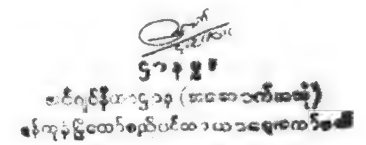 ဌာနမှူး
အင်ဂျင်နီယာဌာန (အဆောက်အအုံ)
ရန်ကုန်မြို့တော်စည်ပင်သာယာရေးကော်မတီ